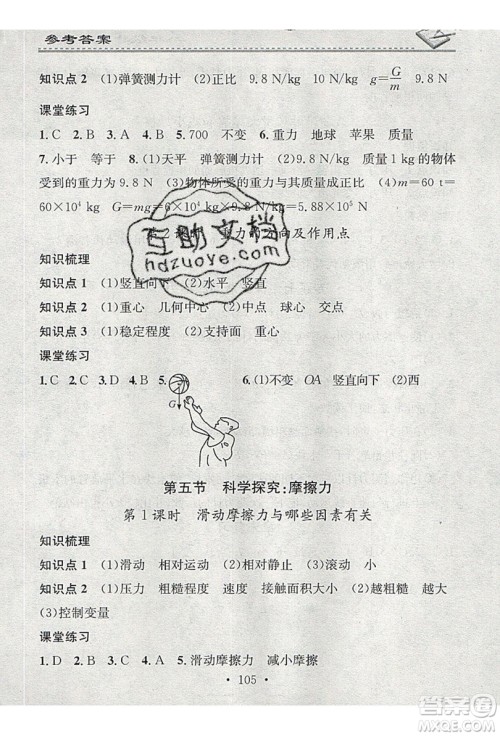 参考答案
知识点2 (1)弹簧测力计 (2)正比 9.8 N/kg 10 N/kg g=G/m 9.8 N
课堂练习
1.C 2.B 3.A 4.A 5.700 不变 6.重力 地球 苹果 质量
7.小于 等于 8.(1)天平 弹簧测力计 (2)9.8 N/kg 质量1 kg的物体
受到的重力为9.8 N (3)物体所受的重力与其质量成正比 (4)m=60 t=
6×10⁴ kg G=mg=60×10³ kg×9.8 N/kg
第2课时 重力的方向及作用点
知识梳理
知识点1 (1)竖直向下 (2)水平 竖直
知识点2 (1)重心 几何中心 (2)中点 球心 交点
知识点3 (1)稳定程度 (2)支持面 重心
课堂练习
1.C 2.C 3.D 4.D 5. 6.(1)不变 OA 竖直向下 (2)西
G
第五节 科学探究:摩擦力
第1课时 滑动摩擦力与哪些因素有关
知识梳理
知识点1 (1)滑动 相对运动 (2)相对静止 (3)滚动 小
知识点2 (1)压力 粗糙程度 速度 接触面积大小 (2)越粗糙 越大
(3)控制变量
课堂练习
1.D 2.B 3.C 4.A 5.滑动摩擦力 减小摩擦
·105·
互助文档
hdzuoye.com
答案圈
MXQE.COM